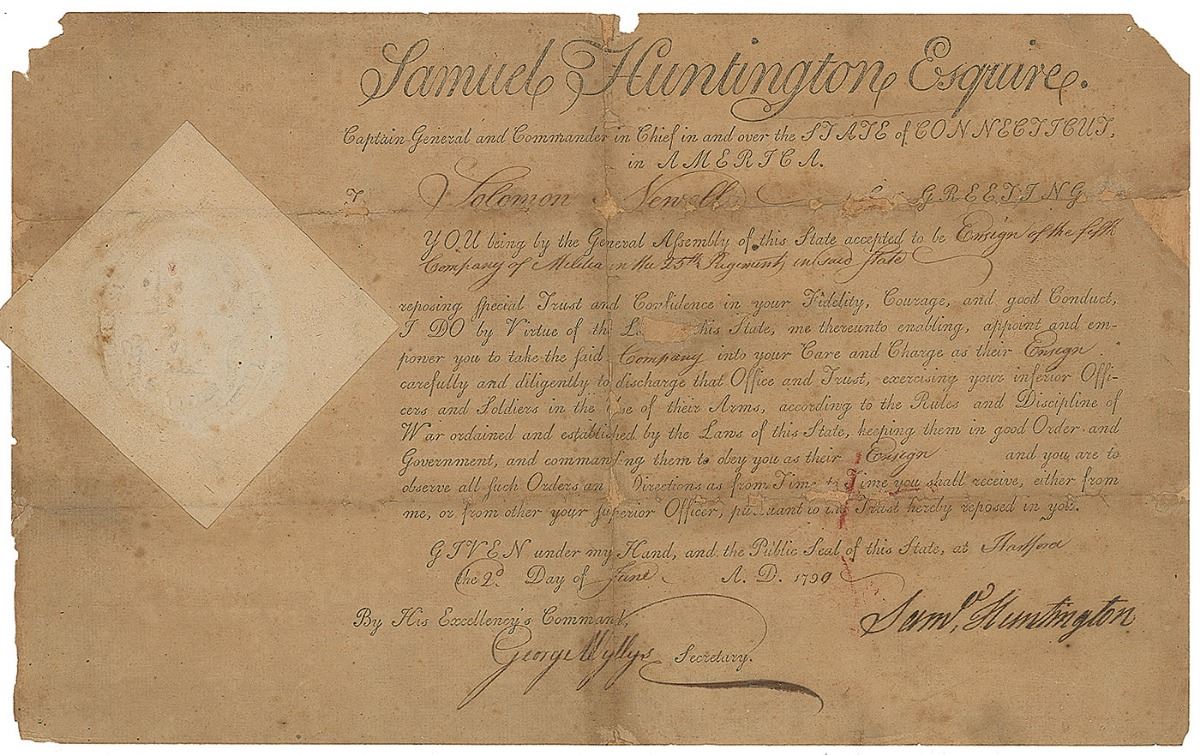 Samuel Huntington Esquire.
Captain General and Commander in Chief in and over the STATE of CONNECTICUT,
in AMERICA.
To Solomon Newell GREETING
YOU being by the General Assembly of this State accepted to be Ensign of the fifth
Company of Militia in the 25th Regiment, in said State
reposing special Trust and Confidence in your Fidelity, Courage, and good Conduct,
I DO by Virtue of the this State, me thereunto enabling, appoint and em-
power you to take the said Company into your Care and Charge as their Ensign
carefully and diligently to discharge that Office and Trust, exercising your inferior Offi-
cers and Soldiers in the Use of their Arms, according to the Rules and Discipline of
War ordained and established by the Laws of this State, keeping them in good Order and
Government, and commanding them to obey you as their Ensign and you are to
observe all such Orders and Directions as from Time to Time you shall receive, either from
me, or from other your superior Officer, pursuant to the Trust hereby reposed in you.
GIVEN under my Hand, and the Public Seal of this State, at Hartford
the 2d. Day of June A. D. 1790
By His Excellency's Command,
Saml. Huntington
George Wyllys Secretary.